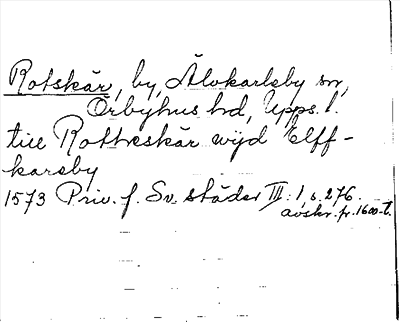 Rotskär, by, Älvkarleby sn,
Örbyhus hd, Upps. l.
till Rotheskär wijd Elff-
kareby
1573 Priv. f. Sv. städer III: 1, s. 276.
avskr. fr. 1600-t.